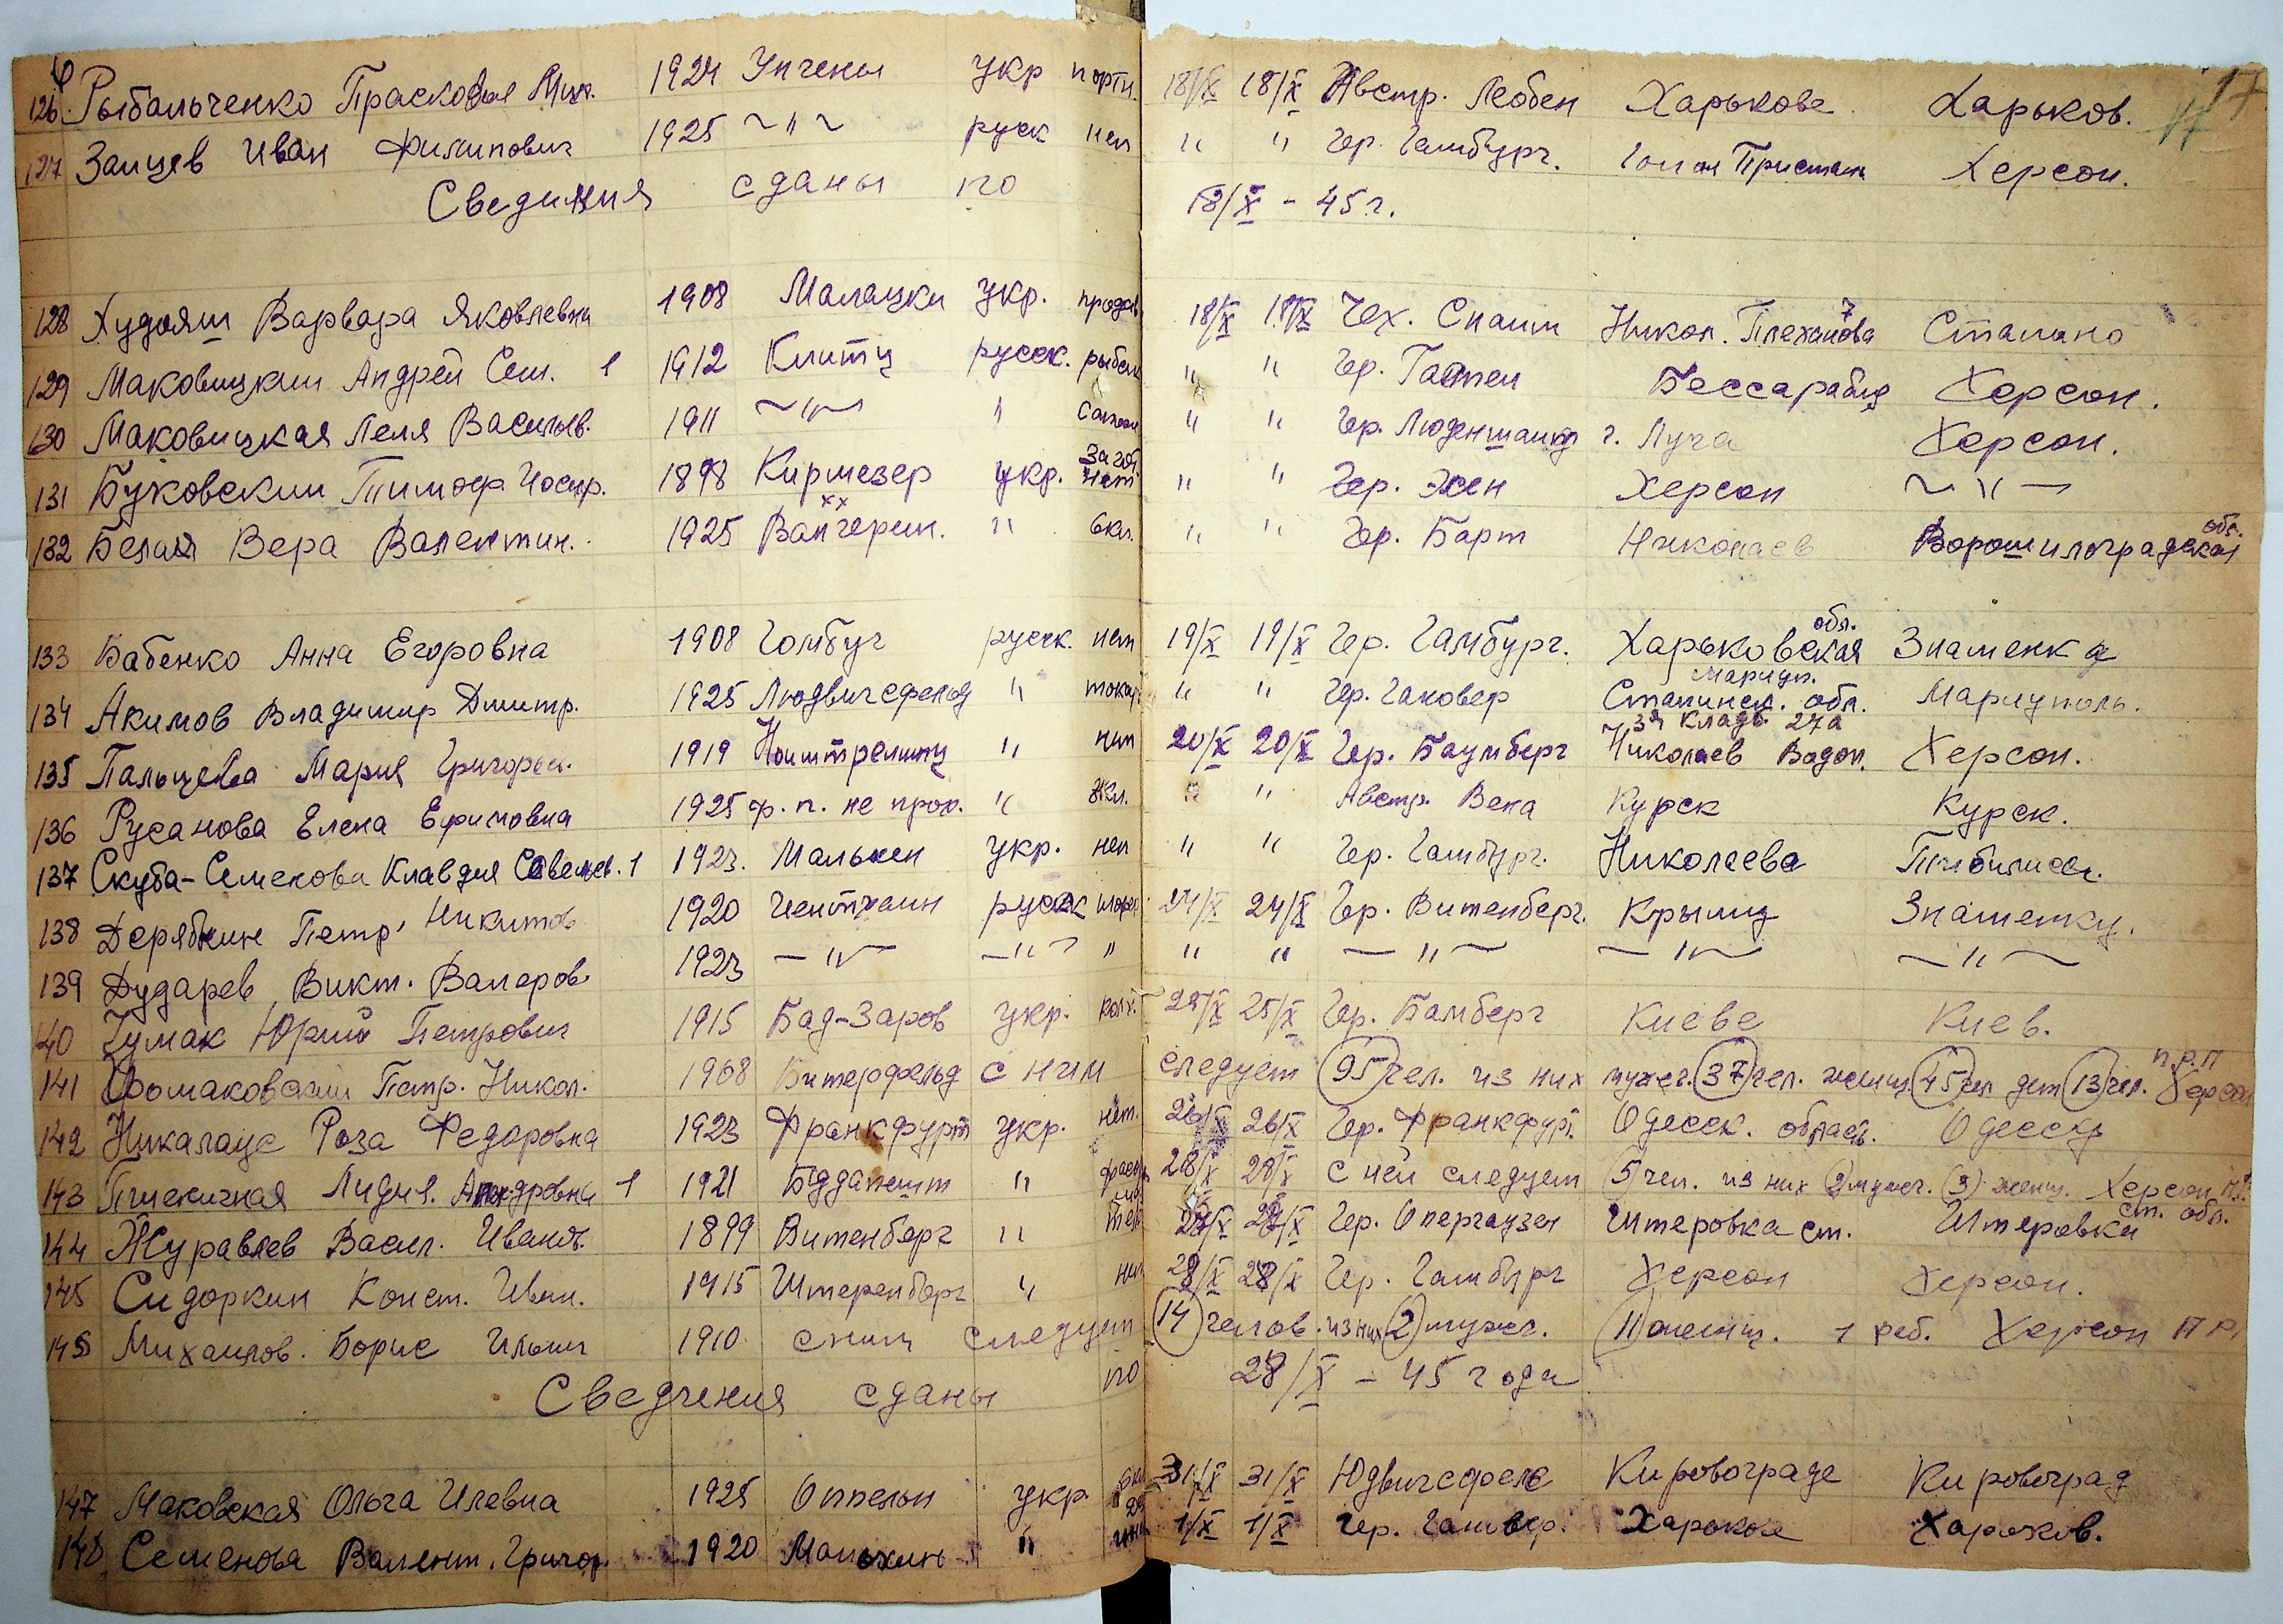 17
126 Рыбальченко Прасковья Мих. 1924 укр порт. 18/IX 18/X Австр. Леобен Харькове Харьков.
127 Зайцев Иван Филипович 1925 ~ " ~ руск неп " " Гер. Гамбург. Голая Пристань Херсон.
Свединия сданы по 18/X - 45 г.
128 Худояш Варвара Яковлевна 1908 Малацки укр. продав 18/X 18/X Чех. Никол. Плеханова 7 Сталино
129 Маковицкий Андрей Сем. 1 1912 русск. рыбак " " Гер. Бессарабия Херсон.
130 Маковицкая Леля Васильев. 1911 ~ " ~ " " " Гер. г. Херсон.
131 Буковский Тимоф Иосиф. 1898 Киршезер укр. " " Гер. Эсен Херсон ~ " ~
132 Белая Вера Валентин. 1925 " 6кл. " " Гер. Барт Николаев Ворошилоградская обл.
133 Бабенко Анна Егоровна 1908 Гомбуг русск. неп 19/X 19/X Гер. Гамбург. Харьковская обл. Знаменка
134 Акимов Владимир Дмитр. 1925 Людвигсфельд " токар " " Гер. Гановер Сталинск. обл. Мариуп. Мариуполь.
135 Пальцева Мария Григорьев. 1919 Ноштрелитц " неп 20/X 20/X Гер. Баумберг Николаев Водоп. 3я Кладб. 27а Херсон.
136 Русанова Елена Ефимовна 1925 ф. п. не прох. " " " Австр. Вена Курск Курск.
137 Скуба-Семенова Клавдия Савельев. 1 1923. Мальхен укр. неп " " Гер. Гамбург. Николаева
138 Дерябкин Петр Никитов 1920 русск шофер 24/X 24/X Гер. Витенберг. Крыму Знаменку.
139 Дударев Викт. Валеров. 1923 — " — — " — " " " — " — — " — — " —
140 Чумак Юрий Петрович 1915 Бад-Заров укр. колх. 25/X 25/X Гер. Бамберг Киеве Киев.
141 Фомаковский Петр. Никол. 1908 Битерфельд с ним следует 95 чел. из них мужч. 37 чел. женщ. 45 чел дет 13 чел. Херсон п.р.п
142 Никалаус Роза Федоровна 1923 Франкфурт укр. нет. 26/X 26/X Гер. Франкфурт. Одесск. област. Одессу
143 Лидия. Александровна 1 1921 Буддапешт " 28/X 28/X с ней следует 5 чел. из них 2 мужч. 3 женщ. Херсон
144 Журавлев Васил. Иванов. 1899 Витенберг " 27/X 27/X Гер. Опергаузен Штеровка ст. Штеровка ст. обл.
145 Сидоркин Конст. Иван. 1915 Штеренберг " неп 28/X 28/X Гер. Гамбург Херсон Херсон.
145 Михайлов. Борис Ильич 1910 с ним следует 14 челов. из них 2 мужч. 11 женщ. 1 реб. Херсон
Сведения сданы по 28/X - 45 года
147 Маковская Ольга Илевна 1925 Оппельн укр 31/X 31/X Юдвигсфелс Кировограде Кировоград
148 Семенова Валент. Григор. 1920 Мальхин " 1/X 1/X Гер. Харькове Харьков.